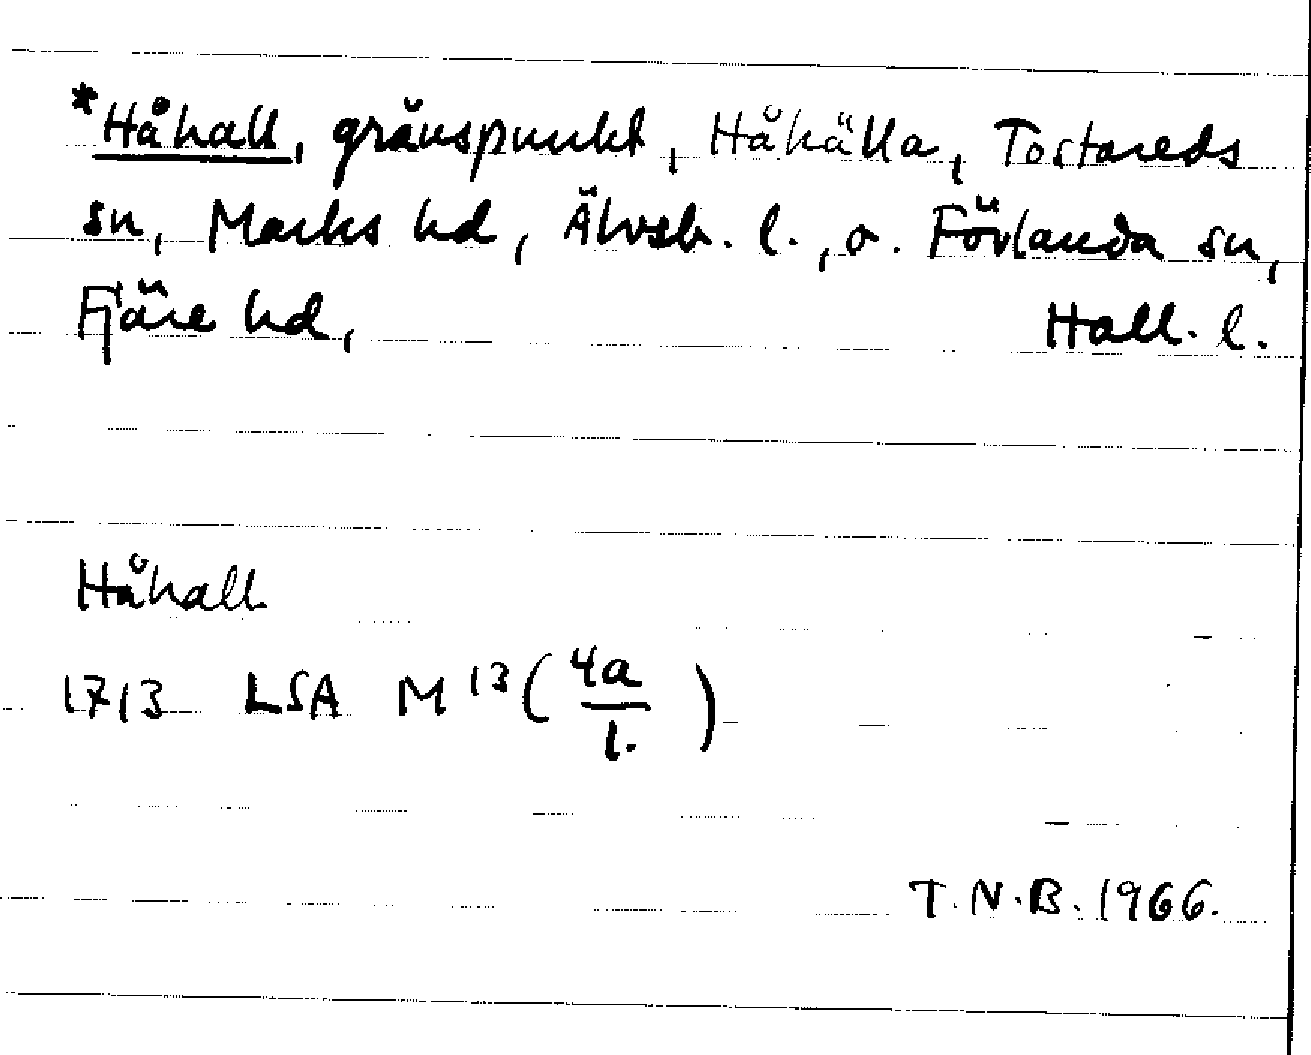 *Håhall, gränspunkt, Håhälla, Tostareds
sn, Marks hd, Älvsb. l., o. Förlanda sn,
Fjäre hd, Hall. l.
Håhall
1713 LSA M 13 (4a/1.)
T.N.B. 1966.